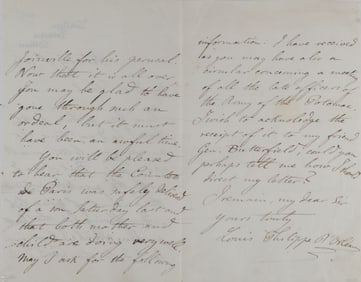 Joinville for his perusal.
Now that it is all over,
you may be glad to have
gone through such an
ordeal, but it must
have been an awful time.
You will be pleased
to hear that the Comtesse
de Paris was safely delivered
of a son Saturday last and
that both mother and
child are doing very well.
May I ask for the following
information. I have received
as you may have also a
circular concerning a meeting
of all the late officers of
the Army of the Potomac.
I wish to acknowledge the
receipt of it to my friend
Gen. Butterfield. Could you
perhaps tell me how I should
direct my letter?
I remain, my dear Sir
yours truly
Louis Philippe d'Orléans